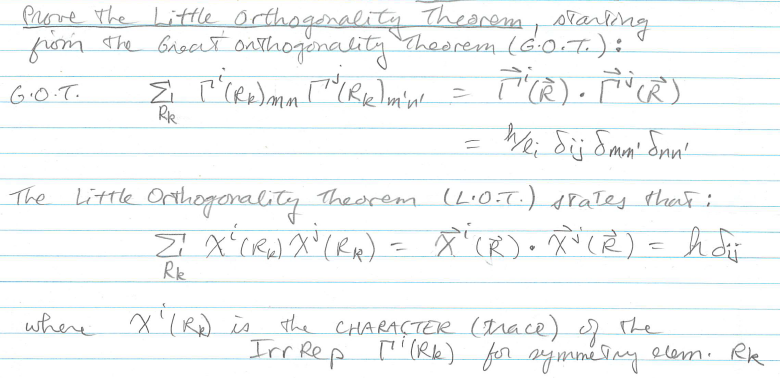 Prove the Little Orthogonality Theorem, starting
from the Great orthogonality Theorem (G.O.T.):
G.O.T. Σ_Rk Γ^i(Rk)mn Γ^j(Rk)m'n' = Γ⃗^i(R⃗) · Γ⃗^j(R⃗)
= h/ℓi δij δmm' δnn'
The Little Orthogonality Theorem (L.O.T.) states that:
Σ_Rk χ^i(Rk) χ^j(Rk) = χ⃗^i(R⃗) · χ⃗^j(R⃗) = h δij
where χ^i(Rk) is the CHARACTER (trace) of the
Irr Rep Γ^i(Rk) for symmetry elem. Rk